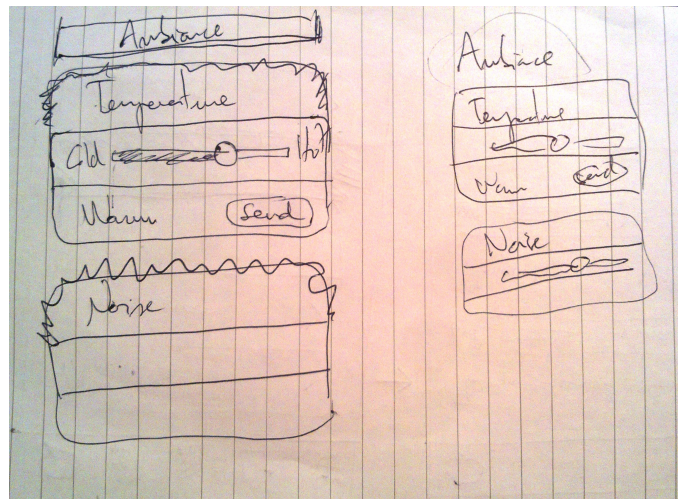 Ambiance
Temperature
Cold Hot
Warm Send
Noise
Ambiance
Temperature
Warm Send
Noise